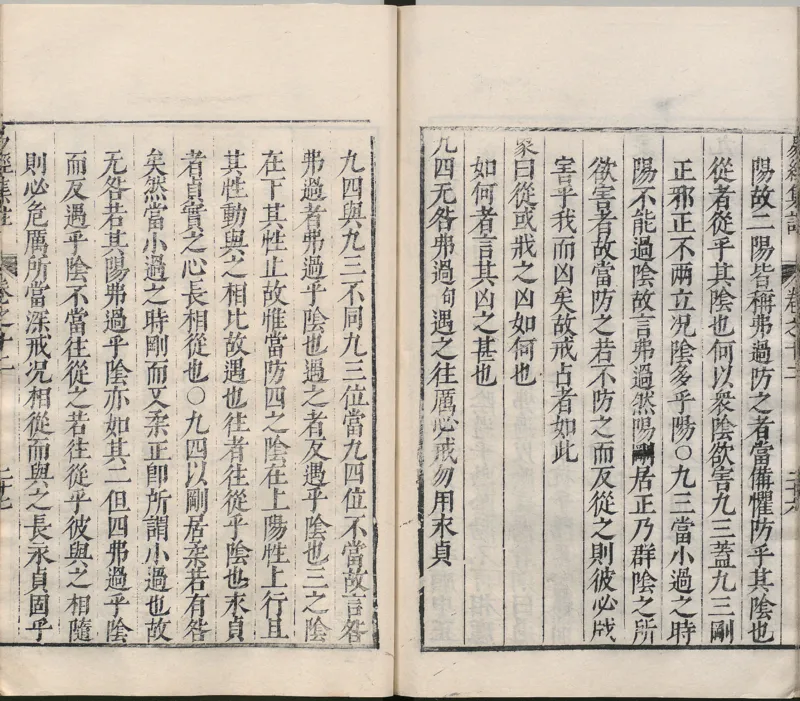 陽故二陽皆稱弗過防之者當備懼防乎其陰也
從者從乎其陰也何以衆陰欲害九三蓋九三剛
正邪正不兩立况陰多乎陽○九三當小過之時
陽不能過陰故言弗過然陽剛居正乃群陰之所
欲害者故當防之若不防之而反從之則彼必戕
害乎我而凶矣故戒占者如此
象曰從或戕之凶如何也
如何者言其凶之甚也
九四无咎弗過句遇之往厲必戒勿用永貞
易經集註 卷之十二 二十七
九四與九三不同九三位當九四位不當故言咎
弗過者弗過乎陰也遇之者反遇乎陰也三之陰
在下其性止故惟當防四之陰在上陽性上行且
其性動與之相比故遇也往者往從乎陰也永貞
者貞實之心長相從也○九四以剛居柔若有咎
矣然當小過之時剛而又柔正即所謂小過也故
无咎若其陽弗過乎陰亦如其二但四弗過乎陰
而反遇乎陰不當往從之若往從乎彼與之相隨
則必危厲所當深戒况相從而與之長永貞固乎